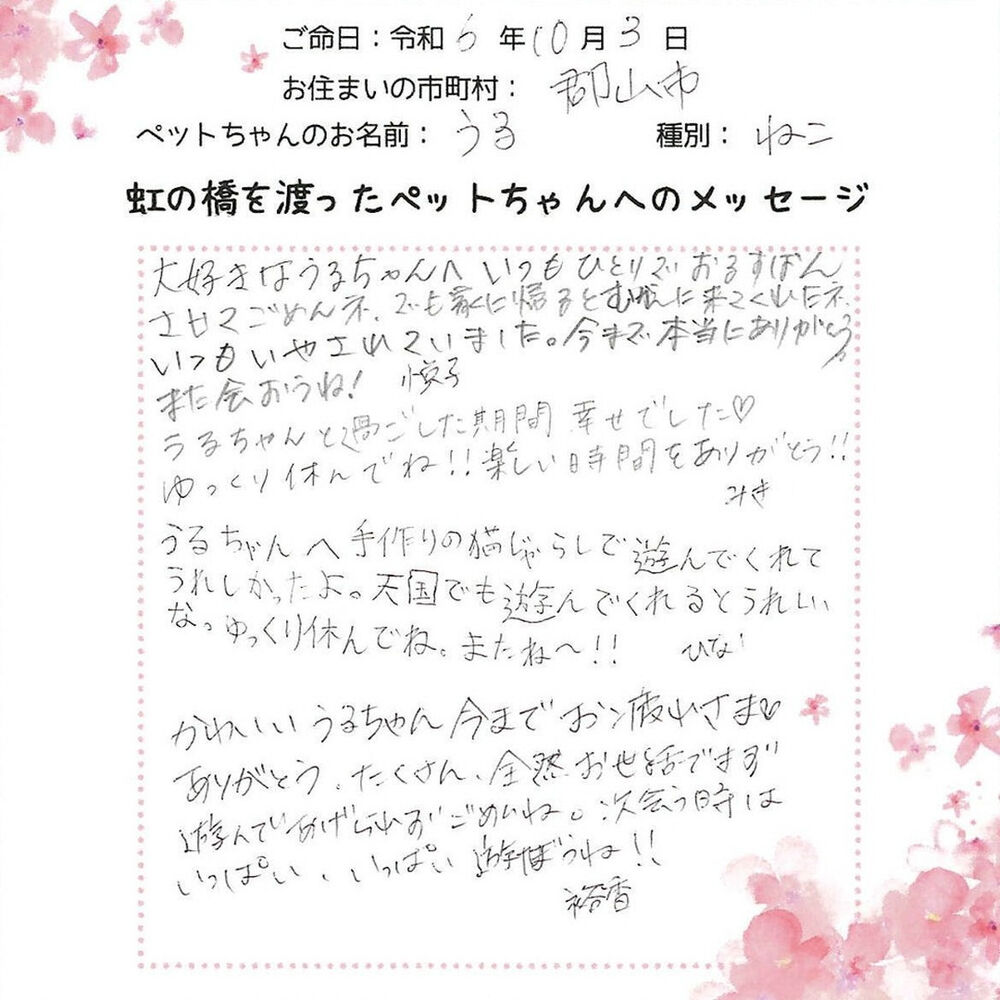 ご命日：令和6年10月3日
お住まいの市町村：郡山市
ペットちゃんのお名前：うる 種別：ねこ
虹の橋を渡ったペットちゃんへのメッセージ
大好きなうるちゃんへ いつもひとりでおるすばん
させてごめんネ、でも家に帰るとむかえに来てくれたネ
いつもいやされていました。今まで本当にありがとう
また会おうね！ 悦子
うるちゃんと過ごした期間 幸せでした♡
ゆっくり休んでね!!楽しい時間をありがとう!!
みき
うるちゃんへ 手作りの猫じゃらしで遊んでくれて
うれしかったよ。天国でも遊んでくれるとうれしい
な。ゆっくり休んでね。またね〜!! ひない
かわいいうるちゃん 今までおつ疲れさま♡
ありがとう、たくさん、全然お世話できず
遊んであげられずごめんね。次会う時は
いっぱい、いっぱい遊ぼうね!!
裕香